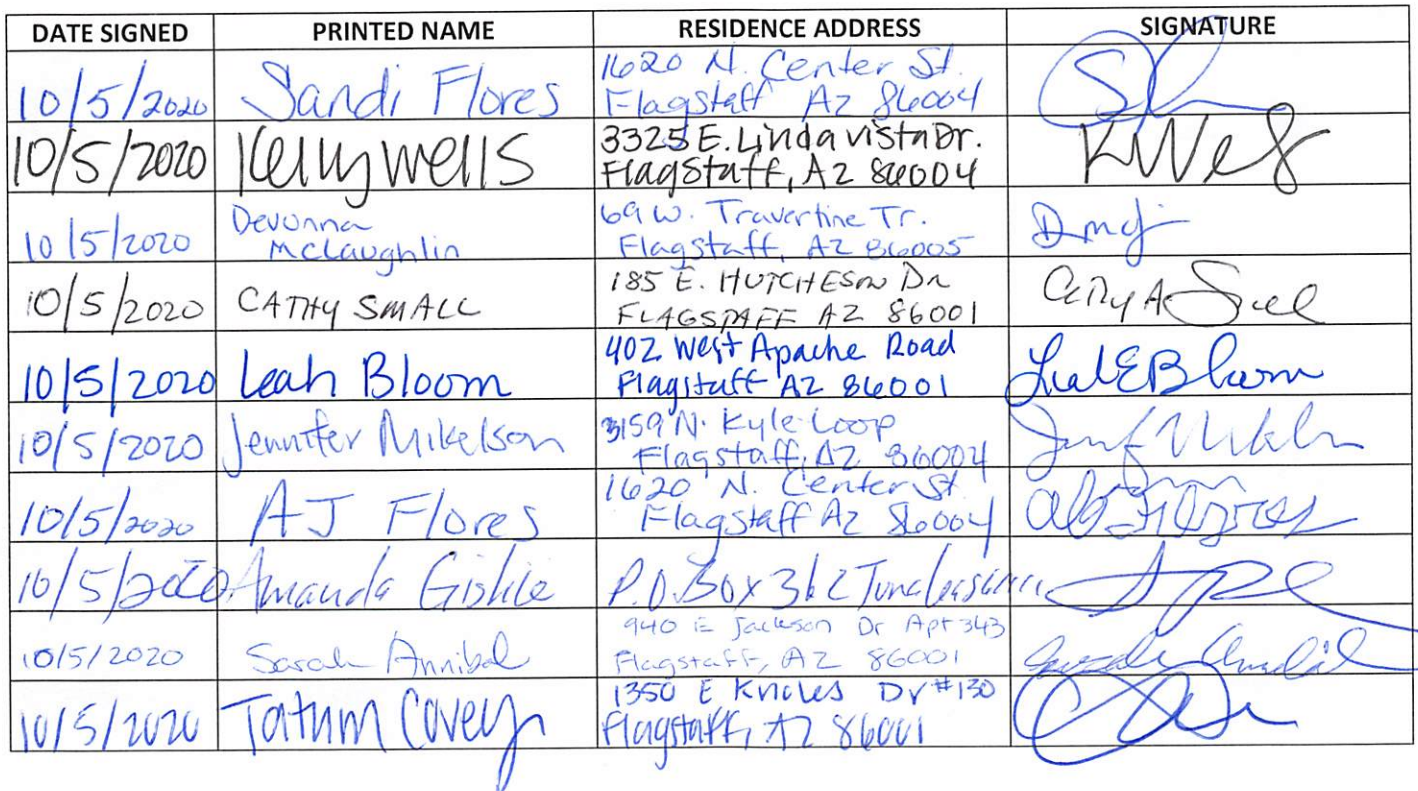 DATE SIGNED PRINTED NAME RESIDENCE ADDRESS SIGNATURE
10/5/2020 Sandi Flores 1620 N. Center St.
Flagstaff AZ 86004
10/5/2020 Kelly Wells 3325 E. Linda vista Dr.
Flagstaff, AZ 86004
KWe
10/5/2020 Devonna
McLaughlin
69 W. Travertine Tr.
Flagstaff, AZ 86005
10/5/2020 CATHY SMALL 185 E. HUTCHESON DR
FLAGSTAFF AZ 86001
Cathy A
10/5/2020 Leah Bloom 402 West Apache Road
Flagstaff AZ 86001
Leah E Bloom
10/5/2020 Jennifer Mikelson 3159 N. Kyle Loop
Flagstaff, AZ 86004
10/5/2020 AJ Flores 1620 N. Center St.
Flagstaff AZ 86004
10/5/2020 Amanda Gishie P.O. Box 362
10/5/2020 Sarah Annibal 940 E Jackson Dr Apt 343
Flagstaff, AZ 86001
10/5/2020 Tatum Covey 1350 E Knoles Dr #130
Flagstaff, AZ 86001